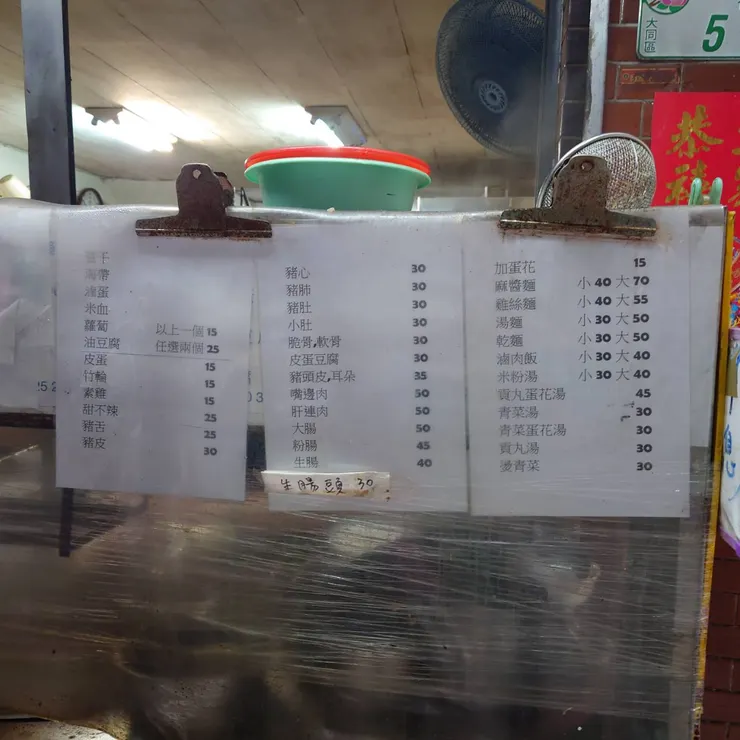 大同區
5
恭禧
豆干
海帶
滷蛋
米血
蘿蔔 以上一個 15
油豆腐 任選兩個 25
皮蛋 15
竹輪 15
素雞 15
甜不辣 25
豬舌 25
豬皮 30
豬心 30
豬肺 30
豬肚 30
小肚 30
脆骨,軟骨 30
皮蛋豆腐 30
豬頭皮,耳朵 35
嘴邊肉 50
肝連肉 50
大腸 50
粉腸 45
生腸 40
生腸頭 30
加蛋花 15
麻醬麵 小 40 大 70
雞絲麵 小 40 大 55
湯麵 小 30 大 50
乾麵 小 30 大 50
滷肉飯 小 30 大 40
米粉湯 小 30 大 40
貢丸蛋花湯 45
青菜湯 30
青菜蛋花湯 30
貢丸湯 30
燙青菜 30